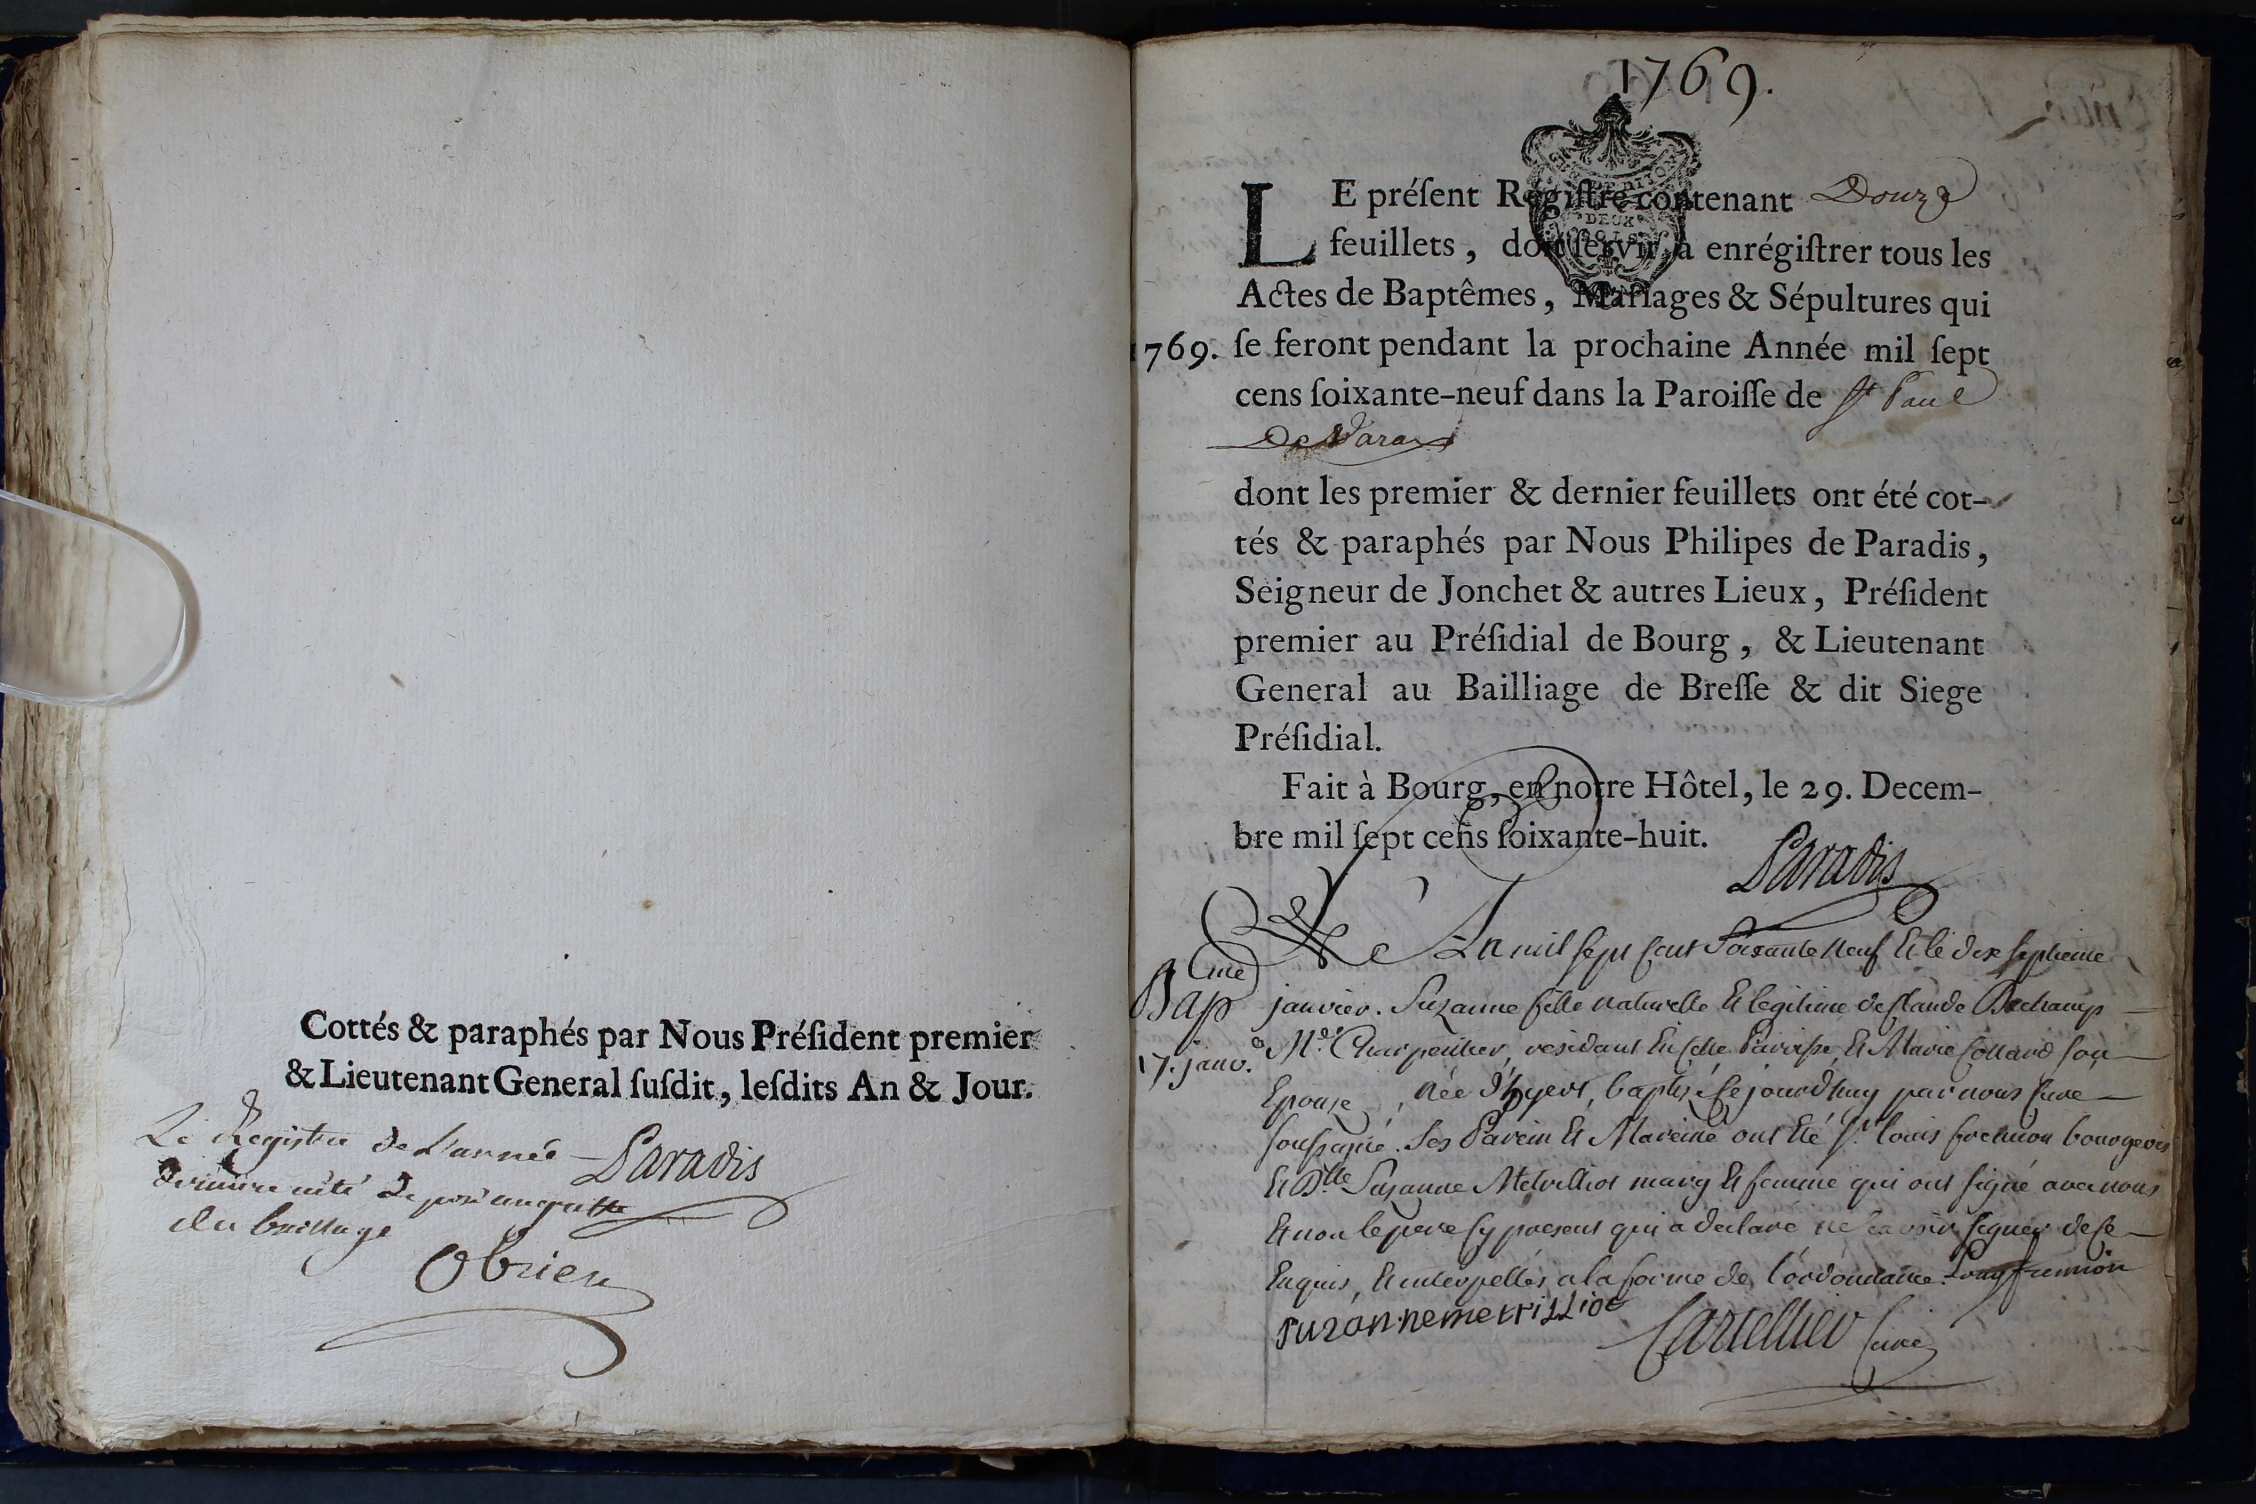 Cottés & paraphés par Nous Préſident premier
& Lieutenant General ſuſdit, leſdits An & Jour.
Le Registre de L'année
derniere a été deposé au greffe
du bailliage
Paradis
Obrien
1769.
DEUX
SOLS
LE préſent Régiſtre contenant Douze
feuillets, doit ſervir à enrégiſtrer tous les
Actes de Baptêmes, Mariages & Sépultures qui
1769. ſe feront pendant la prochaine Année mil ſept
cens ſoixante-neuf dans la Paroiſſe de St Paul
De Varax
dont les premier & dernier feuillets ont été cot-
tés & paraphés par Nous Philipes de Paradis,
Seigneur de Jonchet & autres Lieux, Préſident
premier au Préſidial de Bourg, & Lieutenant
General au Bailliage de Breſſe & dit Siege
Préſidial.
Fait à Bourg, en notre Hôtel, le 29. Decem-
bre mil ſept cens ſoixante-huit.
Paradis
L'An mil sept cent Soixante neuf Et le dix septieme
Bapme
17. janv.
janvier. Suzanne fille naturelle Et legitime de Claude Bechamp
Me Charpentier, residant En cette Paroisse, Et Marie Collard son
Epouse, née d'hyert, baptisé Ce jourdhuy par nous Cure
soussigné. Ses Parein Et Mareine ont Eté Sr. louis fremion bourgeois
Et Dlle Suzanne Metrilliot mary Et femme qui ont signé avec nous
Et non le pere Cy present qui a declaré ne scavoir signer de Ce
Enquis, Et interpellés a la forme de l'ordonnance. Louy fremion
suzanne metrilliot
Cartellier Curé